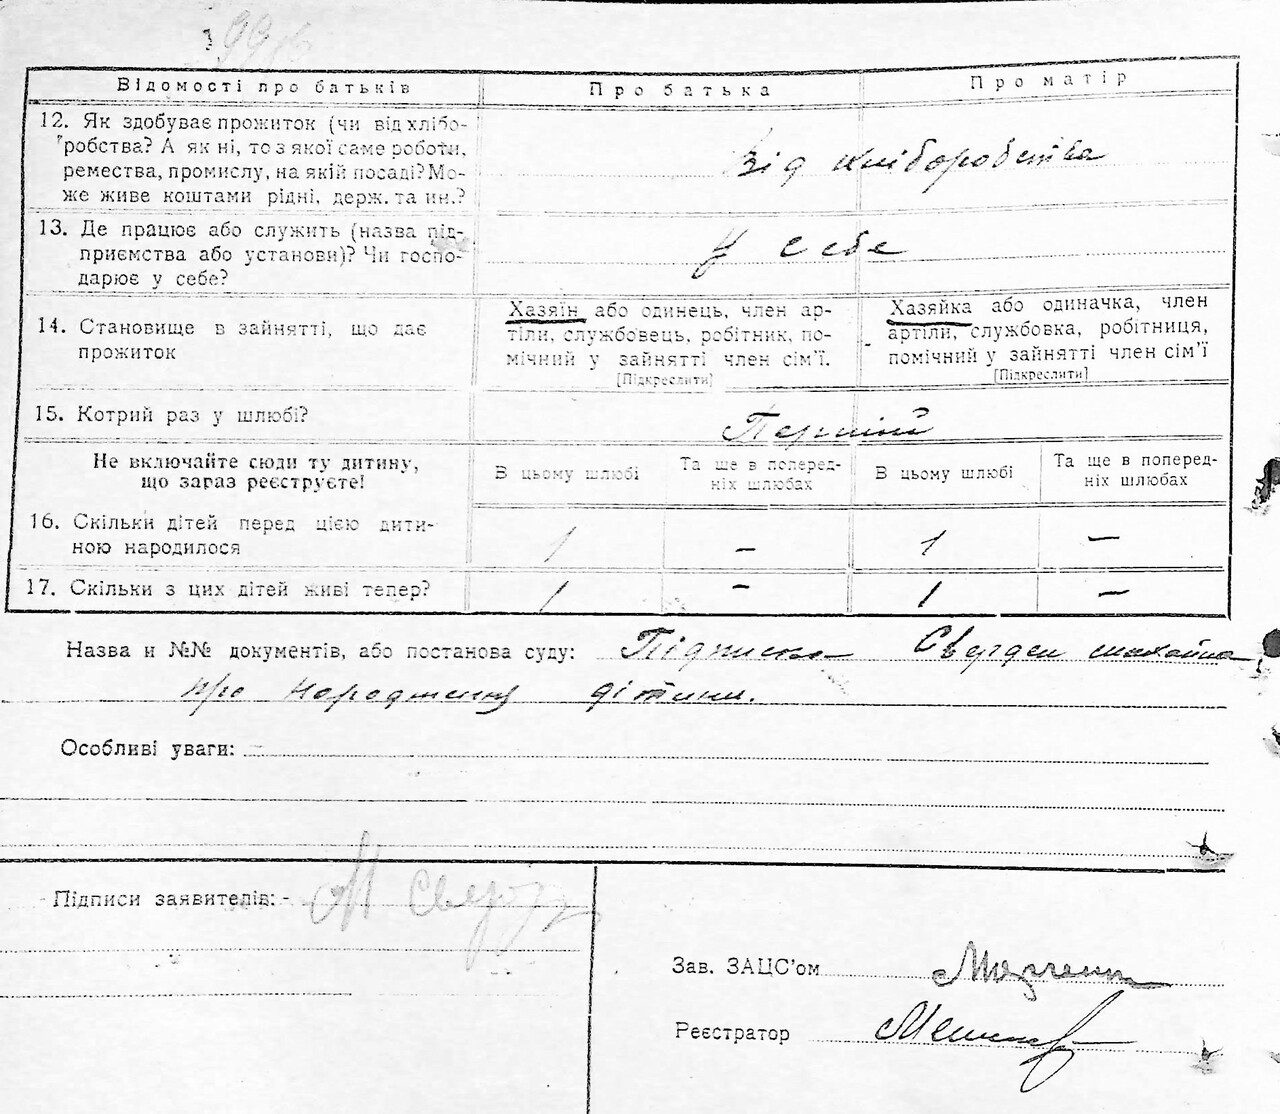 Відомості про батьків Про батька Про матір
12. Як здобуває прожиток (чи від хлібо-
робства? А як ні, то з якої саме роботи,
ремества, промислу, на якій посаді? Мо-
же живе коштами рідні, держ. та ин.?
Від хліборобства
13. Де працює або служить (назва під-
приємства або установи)? Чи госпо-
дарює у себе?
У себе
14. Становище в зайнятті, що дає
прожиток
Хазяїн або одинець, член ар-
тіли, службовець, робітник, по-
мічний у зайнятті член сім'ї.
[Підкреслити]
Хазяйка або одиначка, член
артіли, службовка, робітниця,
помічний у зайнятті член сім'ї
[Підкреслити]
15. Котрий раз у шлюбі?
Перший
Не включайте сюди ту дитину,
що зараз реєструєте!
В цьому шлюбі
Та ще в поперед-
ніх шлюбах
В цьому шлюбі
Та ще в поперед-
ніх шлюбах
16. Скільки дітей перед цією дити-
ною народилося
1 – 1 –
17. Скільки з цих дітей живі тепер? 1 – 1 –
Назва и №№ документів, або постанова суду: Підписка
про народження дітини.
Особливі уваги:
Підписи заявителів:
Зав. ЗАЦС'ом
Реєстратор